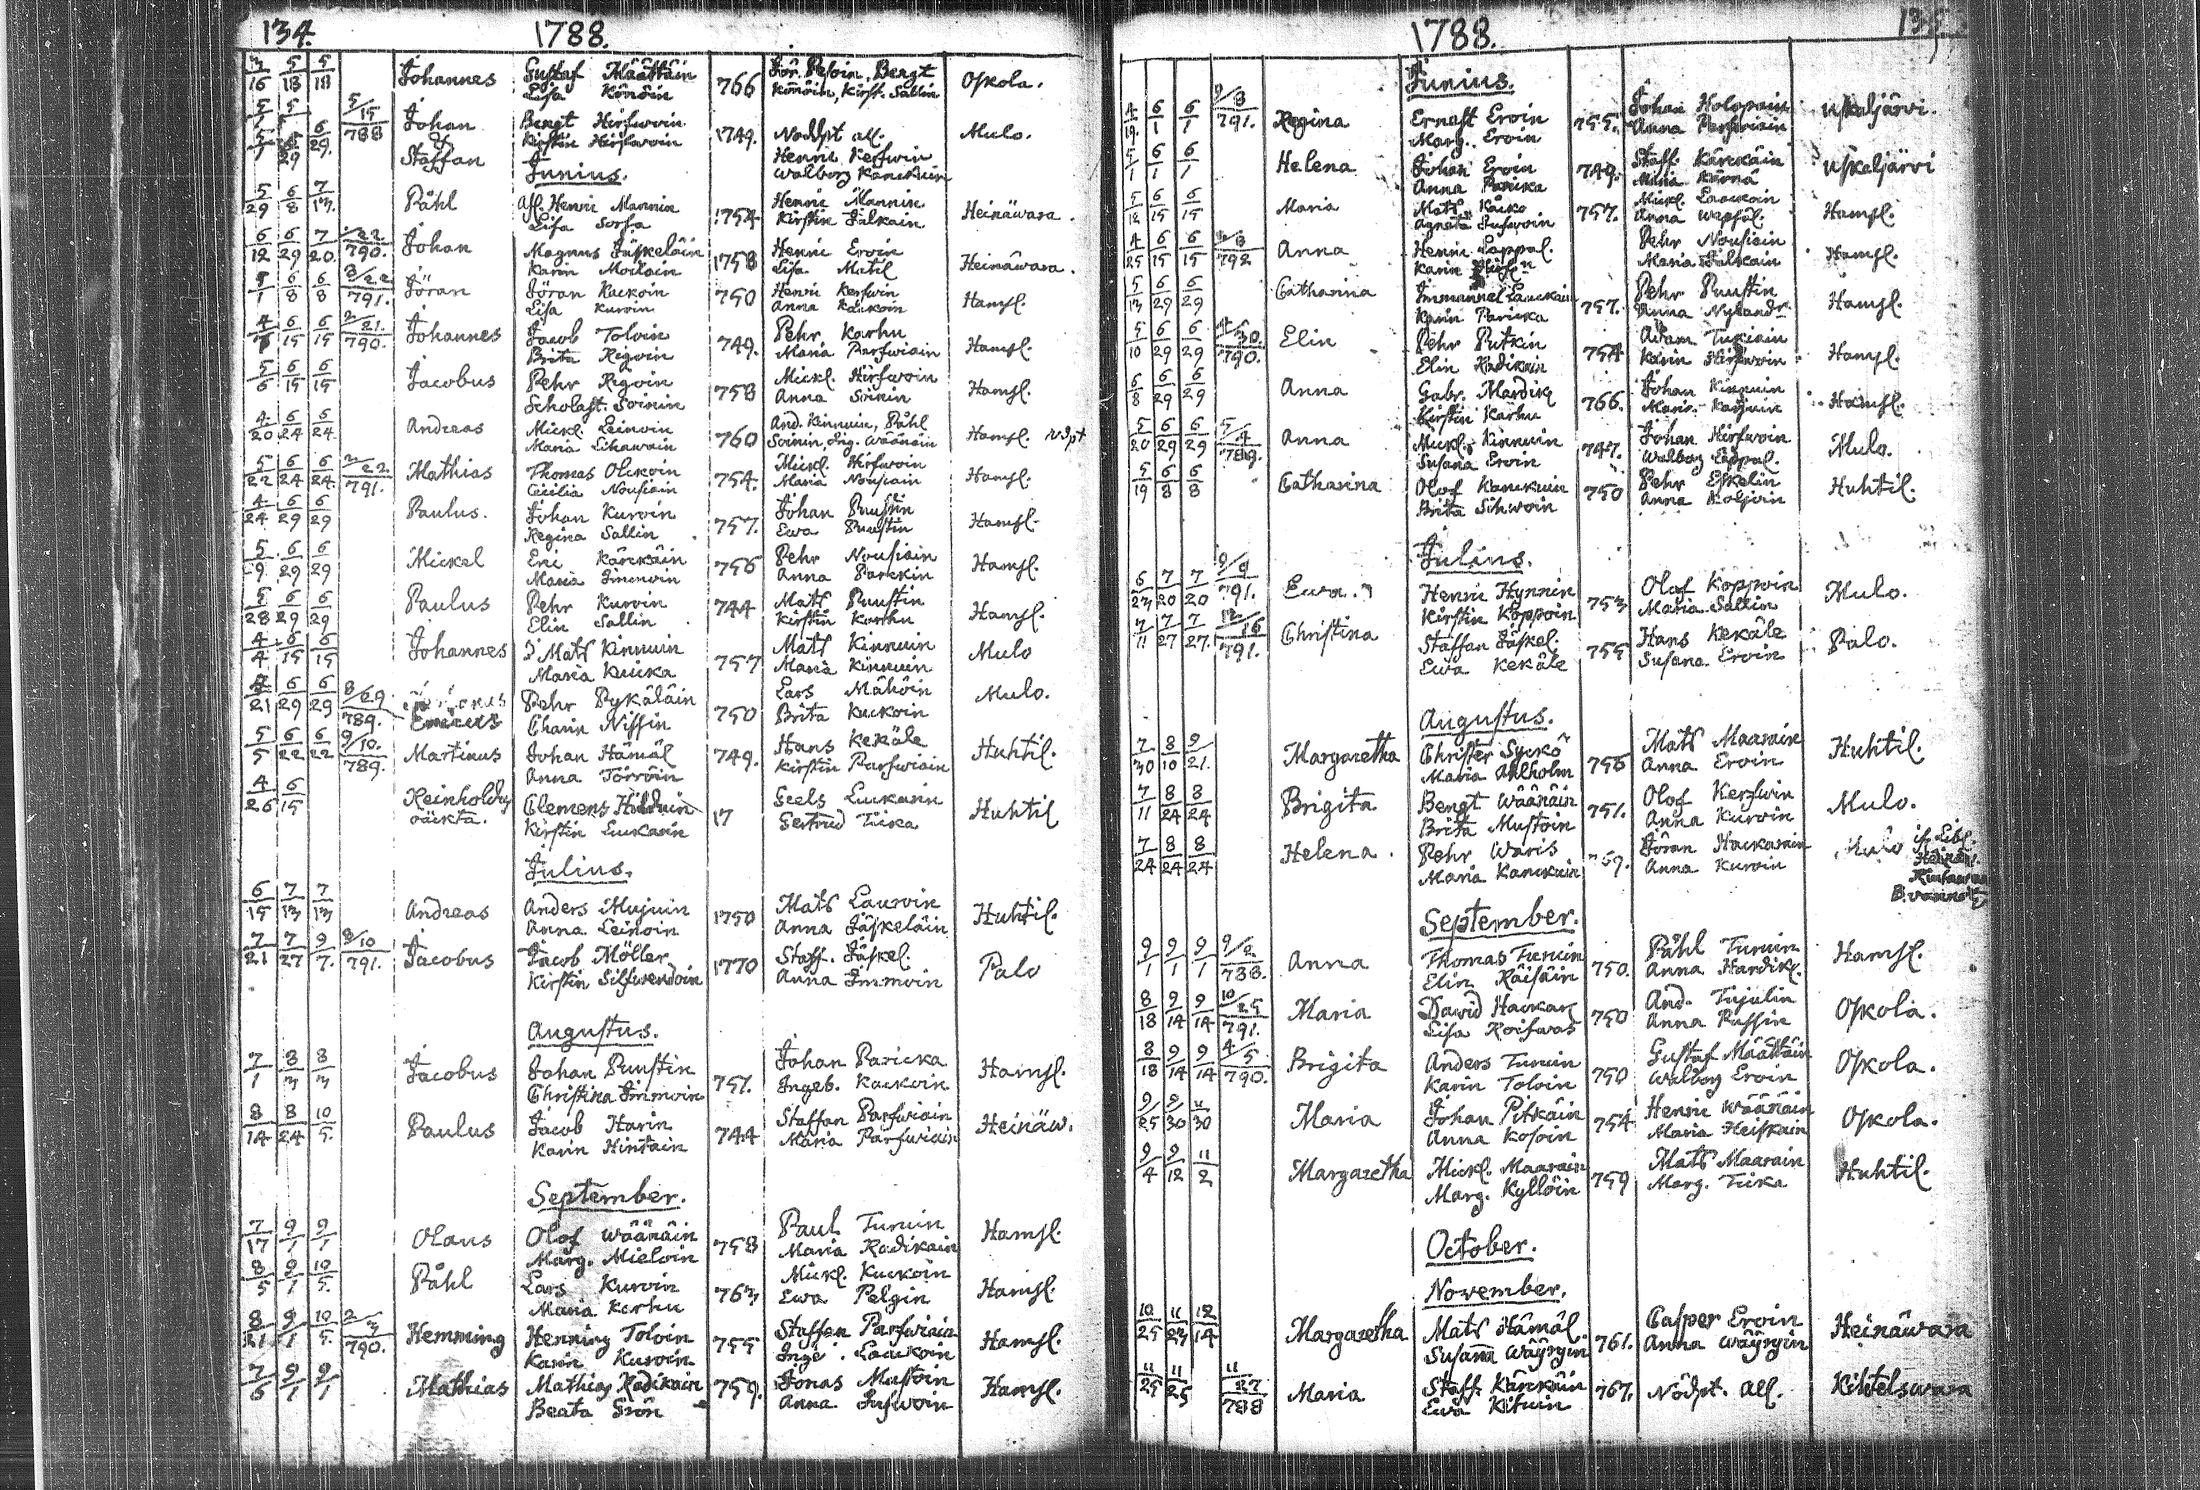 134. 1788.
3/16 5/18 5/18 Johannes Gustaf Määttäin 766 Jör. Pesoin, Bengt Oskola.
Lisa Könöin Könöin, Kirst. Sallin
5/7 5/7 5/15 788 Johan Bengt Hirfwoin 1749. Nödpt all. Mulo.
5/7 6/29 6/29. Staffan Kirstin Hirfwoin Henric Kerfwin
Junius. Walborg Kanckuin
5/29 6/8 7/13. Påhl Afl. Henric Mannin 1754 Henric Mannin Heinäwara.
Lisa Sorsa Kirstin Jalkain
6/12 6/29 7/20. /22 790. Johan Magnus Jäskeläin 1758 Henric Eroin Heinäwara.
Karin Moilain Lisa Matil
5/1 6/8 6/8 3/22 791. Jöran Jöran Kuckoin 750 Henric Kerfwin Hamsl.
Lisa Kuroin Anna Käckoin
4/7 6/15 6/15 2/21. 790. Johannes Jacob Toloin 749. Pehr Karhu Hamsl.
Brita Regoin Maria Parfwiain
5/6 6/15 6/15 Jacobus Pehr Regoin 758 Mickl. Hirfwoin Hamsl.
Scholast. Soinin Anna Soinin
4/20 6/24 6/24. Andreas Mickl. Leinoin 760 And. Kinnuin, Påhl Hamsl.
Maria Lihawain Soinin, Ing. Wäänäin
5/22 6/24 6/24. 2/22 791. Mathias Thomas Olckoin 754. Mickl. Hirfwoin Hamsl.
Cicilia Nousiain Maria Nousiain
4/24 6/29 6/29 Paulus. Johan Kuroin 757. Johan Puustin Hamsl.
Regina Sallin Ewa Puustin
5/9 6/29 6/29 Mickel Eric Kärckäin 756 Pehr Nousiain Hamsl.
Maria Immoin Anna Parckin
5/28 6/29 6/29 Paulus Pehr Kuroin 744 Mats Puustin Hamsl.
Elin Sallin Kirstin Karhu
4/4 6/15 6/15 Johannes Mats Kinnuin 757 Mats Kinnuin Mulo
Maria Kuicka Maria Kinnuin
21 6/29 6/29 8/29. 789. Pehr Pykäläin 750 Lars Mähöin Mulo.
Charin Nissin Brita Kuckoin
5/5 6/22 6/22 9/10. 789. Martinus Johan Hämäl 749. Hans Kekäle Huhtil.
Anna Törröin Kirstin Parfwiain
4/26 6/15 Reinhold Clemens Hilduin 17 Geels Luckarin Huhtil
oäckta. Kirstin Luckarin Gertrud Tiika
Julius.
6/15 7/13 7/13 Andreas Anders Mujuin 1750 Mats Lauroin Huhtil.
Anna Leinoin Anna Jäskeläin
7/21 7/27 9/7. 8/10 791. Jacobus Jacob Möller 1770 Staff. Jäskel. Palo
Kirstin Silfwendoin Anna Immoin
Augustus.
7/1 8/3 8/3 Jacobus Johan Puustin 757. Johan Paricka Hamsl.
Christina Immoin Ingeb. Kackoin
8/14 8/24 10/5. Paulus Jacob Harin 744 Staffan Parfwiain Heinäw.
Karin Hintain Maria Parfwiain
September.
7/17 9/1 9/1 Olaus Olof Wäänäin 758 Paul Turuin Hamsl.
Marg. Mieloin Maria Radikain
8/5 9/1 10/5. Påhl Lars Kuroin 763 Mickl. Kuckoin Hamsl.
Maria Karhu Ewa Pelgin
8/21 9/1 10/5. 2/3 790. Hemming Henning Toloin 755 Staffan Parfwiain Hamsl.
Karin Kuroin Inge . Laackoin
7/6 9/1 9/1 Mathias Mathias Radikain 759. Jonas Mustoin Hamsl.
Beata Grön Anna Jusfwoin
1788. 135
Junius.
4/19. 6/1 6/1 9/8 791. Regina Ernst Eroin 755. Johan Holopain Uskaljärvi.
Marg. Eroin Anna Parfwiain
5/1 6/1 6/1 Helena Johan Eroin 749. Staff. Kärckäin Uskaljärvi
Anna Paricka Maria Kärnä
5/12 6/15 6/15 Maria Mats Käckö 757. Mickl. Laackoin Hamsl.
Agneta Jusfwoin Anna Wepsäl.
4/25 6/15 6/15 792 Anna Henric Lappal. Pehr Nousiain Hamsl.
Karin Maria Jalkain
5/13 6/29 6/29 Catharina Immanuel Lauckain 757. Pehr Puustin Hamsl.
Karin Paricka Anna Nylandr
5/10 6/29 6/29 /30. 790. Elin Pehr Putkin 754 Adam Tukiain Hamsl.
Elin Radikain Karin Hirfwoin
6/8 6/29 6/29 Anna Gabr. Mardik 766. Johan Kinnuin Hamsl.
Kirstin Karhu Maria
5/20 6/29 6/29 5/4 789. Anna Mickl. Kinnuin 747. Johan Hirfwoin Mulo.
Susana Eroin Walborg Lappal.
5/19 6/8 6/8 Catharina Olof Kanckuin 750 Pehr Eskelin Huhtil.
Brita Sihwoin Anna Koljoin
Julius.
6/23 7/20 7/20 9/9 791. Ewa. Henric Hynnin 753 Olof Koppoin Mulo.
Kirstin Koppoin Maria Sallin
7/11 7/27 7/27. 12/16 791. Christina Staffan Jäskel. 755 Hans Kekäle Palo.
Ewa Kekäle Susana Eroin
Augustus.
7/30 8/10 9/21. Margaretha Christer Syckö 756 Mats Maarain Huhtil.
Maria Ahlholm Anna Eroin
7/11 8/24 8/24 Brigita Bengt Wäänäin 751. Olof Kerfwin Mulo.
Brita Mustoin Anna Kuroin
7/24 8/24 8/24 Helena. Pehr Waris 769. Jöran Hackarain Mulo
Maria Kanckuin Anna Kuroin
September.
9/1 9/1 9/1 9/2 788. Anna Thomas Turuin 750. Påhl Turuin Hamsl.
Elin Räisäin Anna Hardik.
8/18 9/14 9/14 10/25 791. Maria David Hackar 750 And. Tujulin Oskola.
Lisa Koifwas Anna Pussin
8/18 9/14 9/14 4/5 790. Brigita Anders Turuin 750 Gustaf Määttäin Oskola.
Karin Toloin Walborg Eroin
9/25 9/30 11/30 Maria Johan Pitkäin 754 Henric Wäänäin Oskola.
Anna Kosoin Maria Heiskain
9/4 9/12 11/2 Margaretha Mickl. Maarain 759 Mats Maarain Huhtil.
Marg. Kyllöin Marg. Tiika
October.
November.
10/25 11/23 12/14 Margaretha Mats Hämäl. 761. Casper Eroin Heinäwara
Susanna Wäyrgin Anna Wäyrgin
11/25 11/25 11/27 788 Maria Staff. Kärckäin 767. Nödpt. all. Kihtelswara
Ewa Kituin